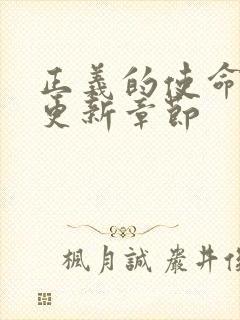 正義的使命
更新章節
楓月誠 嚴井俊